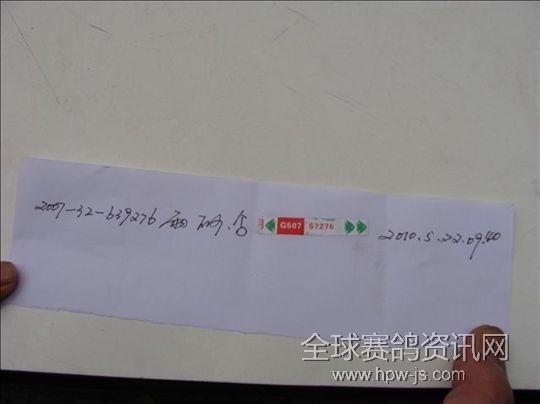 2007-32-639276
G507 57276
2010.5.22.09.40
全球赛鸽资讯网
www.hpw-js.com